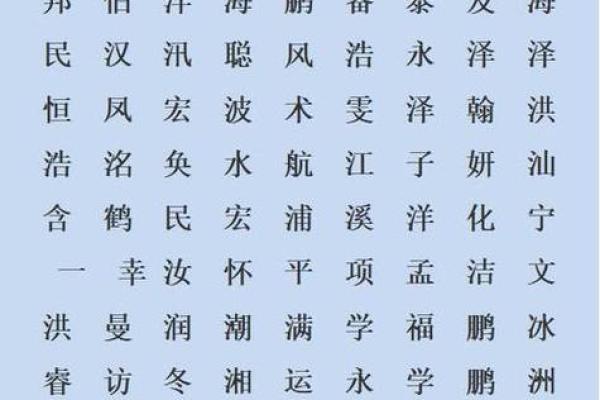 邦 伯 洋 海 鹏 备 泰 友 海
民 汉 汛 聪 风 浩 永 泽 泽
恒 凤 宏 波 术 雯 泽 翰 洪
浩 洺 奂 水 航 江 子 妍 汕
含 鹤 民 宏 浦 溪 洋 化 宁
一 幸 汝 怀 平 项 孟 洁 文
洪 曼 润 潮 满 学 福 鹏 冰
睿 访 冬 湘 运 永 学 鹏 洲